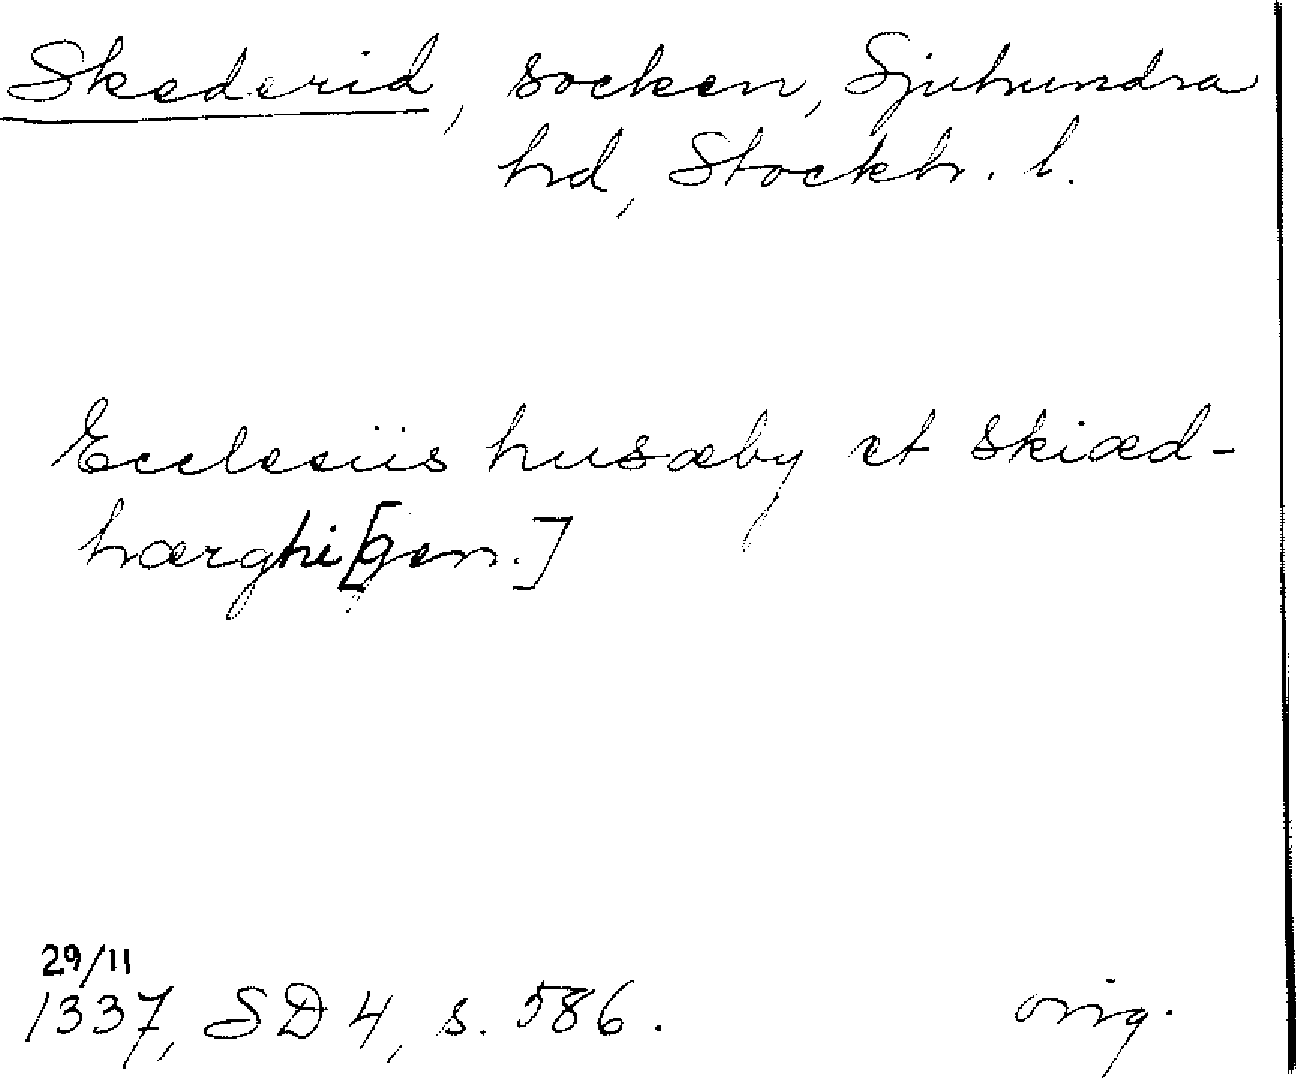 Skederid, socken, Sjuhundra
hd, Stockh. l.
Ecclesiis husæby et skiæd-
hærghi [gen.]
29/11
1337, SD 4, s. 586.
orig.